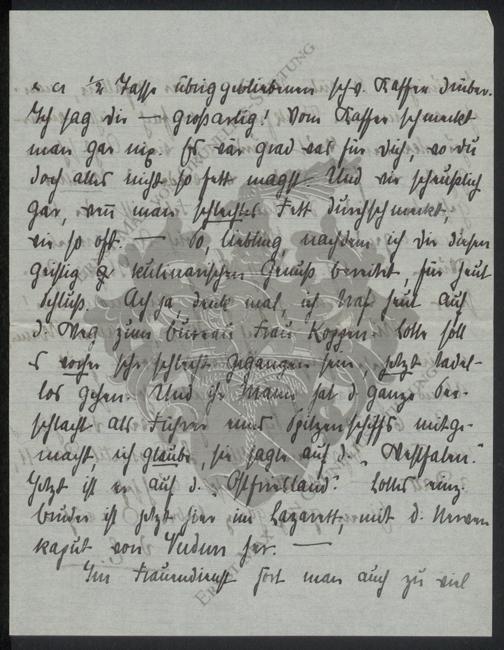 & ca 1/2 Tasse übriggebliebenen schw. Kaffee drüber.
Ich sag dir — großartig! Vom Kaffee schmeckt
man gar nix. Es wär grad was für Dich, wo du
doch alles nicht so fett magst. Und wie scheußlich
gar, wenn man schlechtes Fett durchschmeckt,
wie so oft. — So, Liebling, nachdem ich dir diesen
geistig & kulinarischen Genuß bereitet für heut
Schluß. Ach ja, denk mal, ich traf heut auf
d. Weg zum Bureau Frau Koppen. Lotte soll
es vorher sehr schlecht gegangen sein, jetzt tadel-
los gehen. Und ihr Mann hat d. ganze See-
schlacht als Führer eines Spitzenschiffs mitge-
macht, ich glaube, sie sagte auf d. „Westfalen“.
Jetzt ist er auf d. „Ostfriesland“. Lottes einz.
Bruder ist jetzt hier im Lazarett, mit d. Nerven
kaput von Verdun her. —
Im Frauendienst hört man auch zu viel